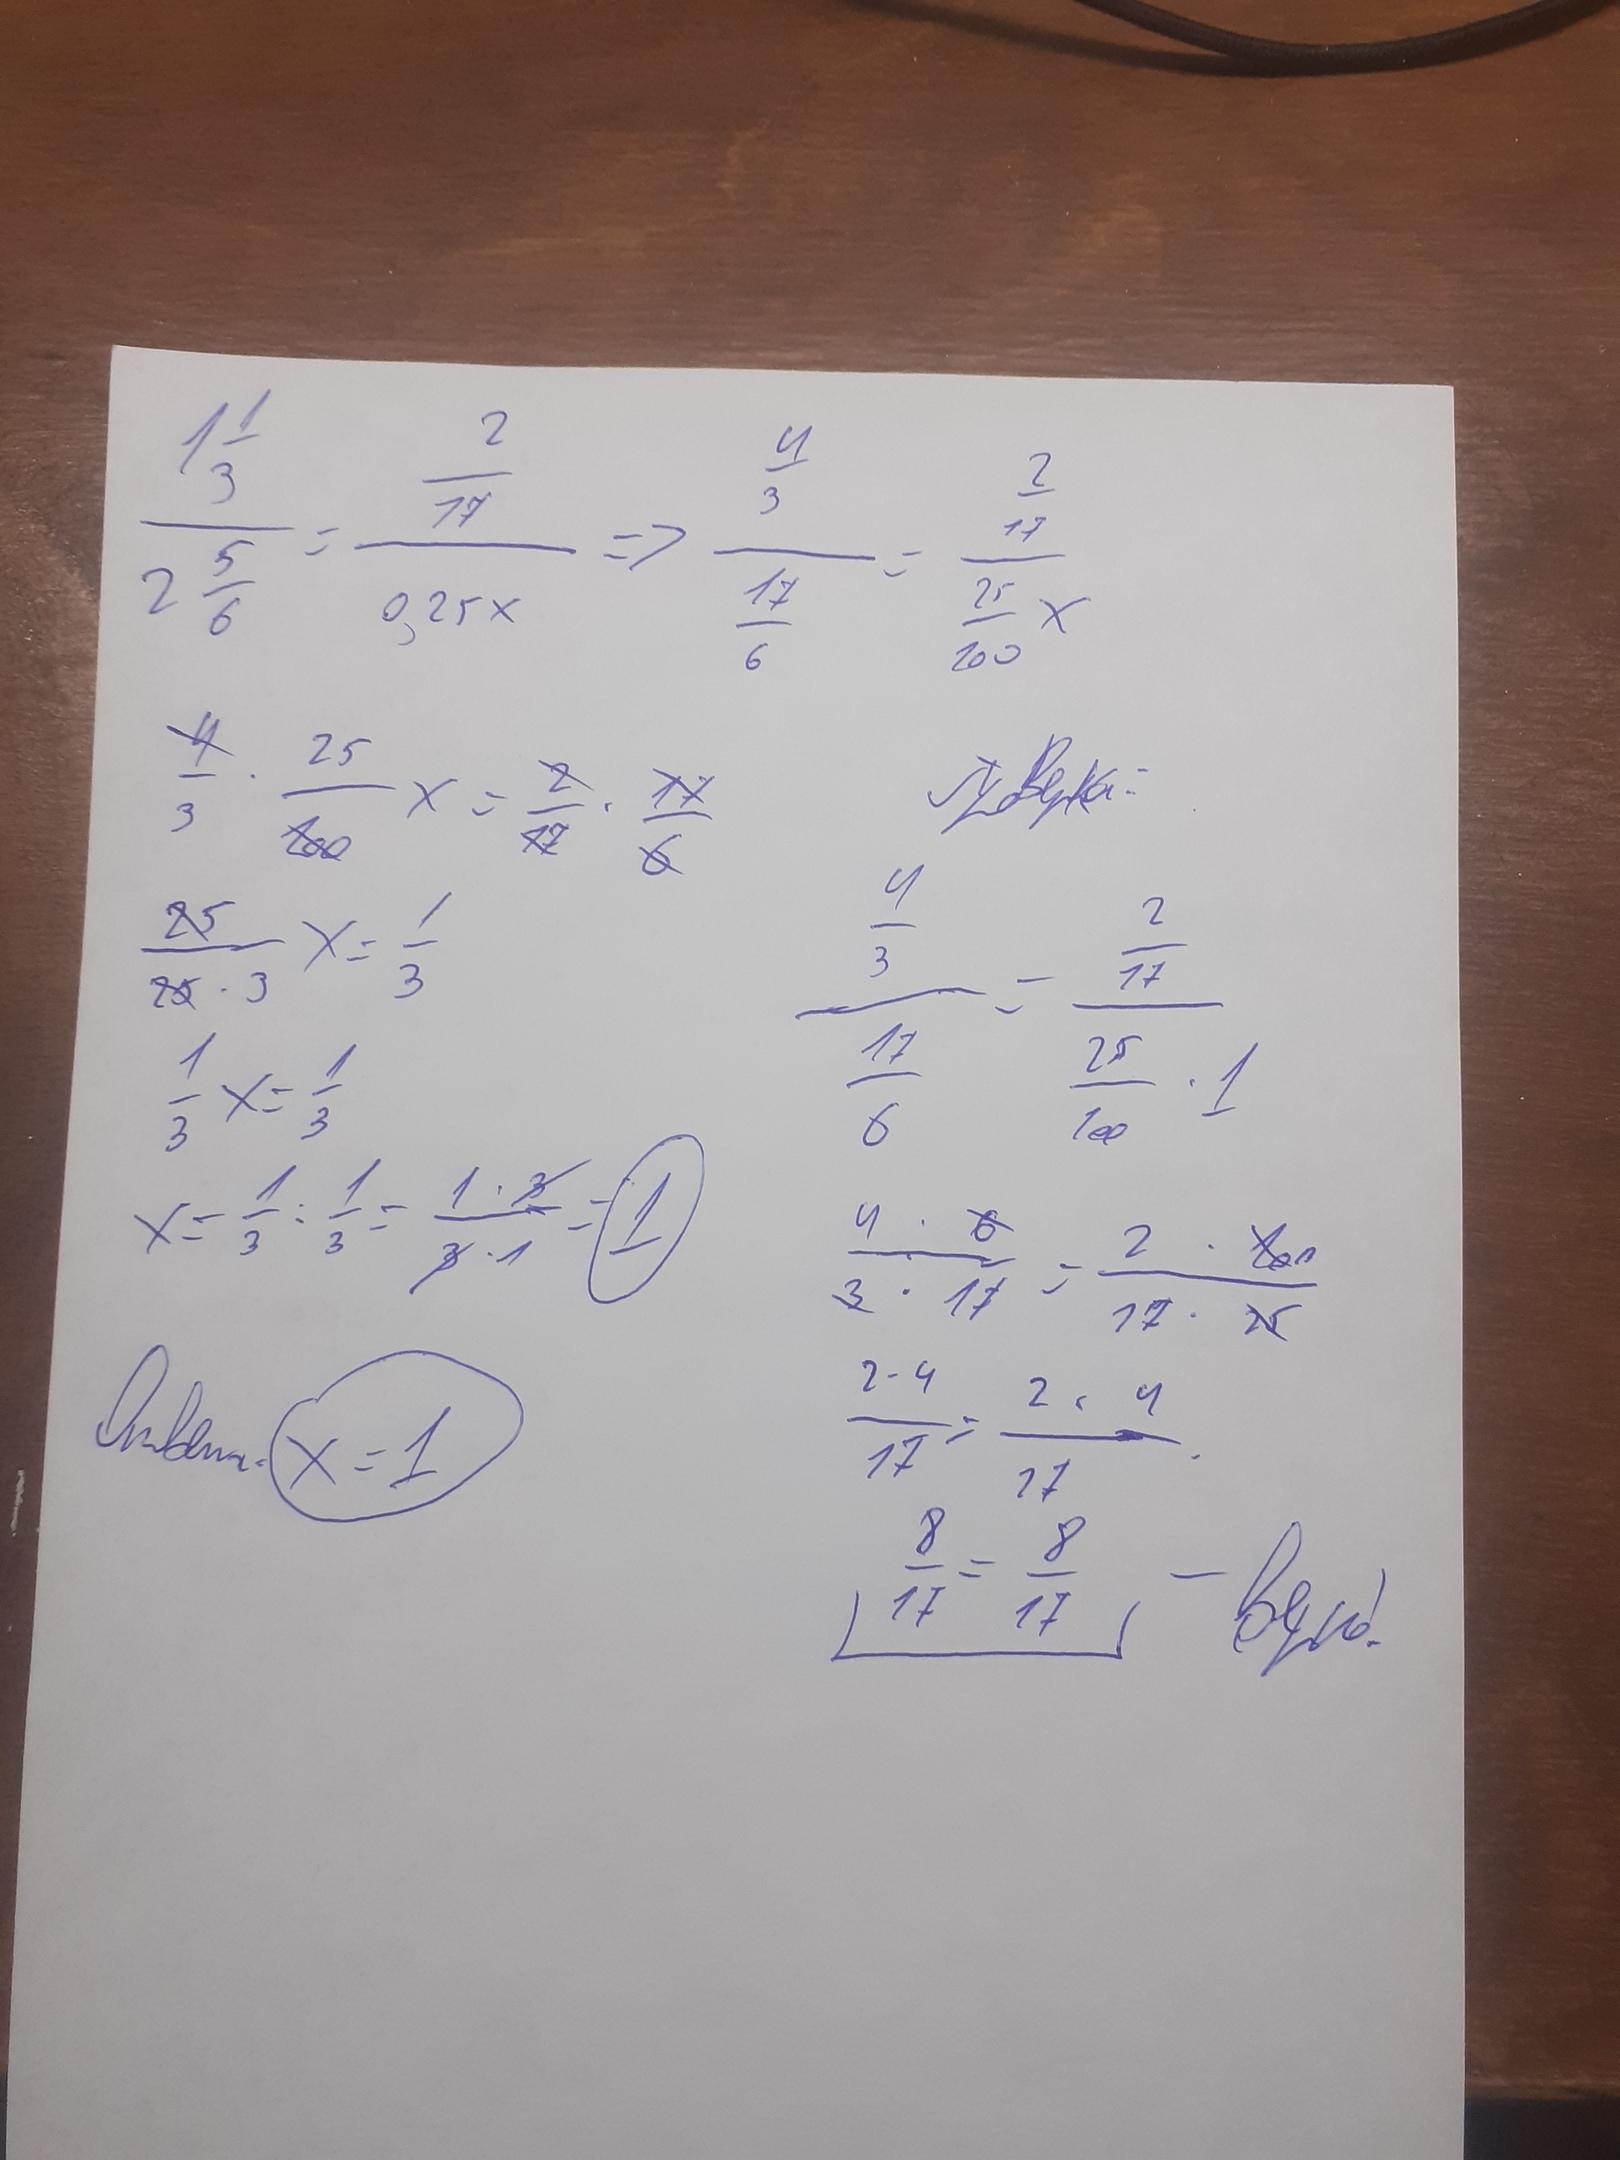 1 1/3 / 2 5/6 = 2/17 / 0,25x => 4/3 / 17/6 = 2/17 / 25/100 x
4/3 · 25/100 x = 2/17 · 17/6
25/25·3 x = 1/3
1/3 x = 1/3
x = 1/3 : 1/3 = 1·3/3·1 = 1
Ответ: x = 1
Проверка:
4/3 / 17/6 = 2/17 / 25/100 · 1
4·6/3·17 = 2·100/17·25
2·4/17 = 2·4/17
8/17 = 8/17 – верно!